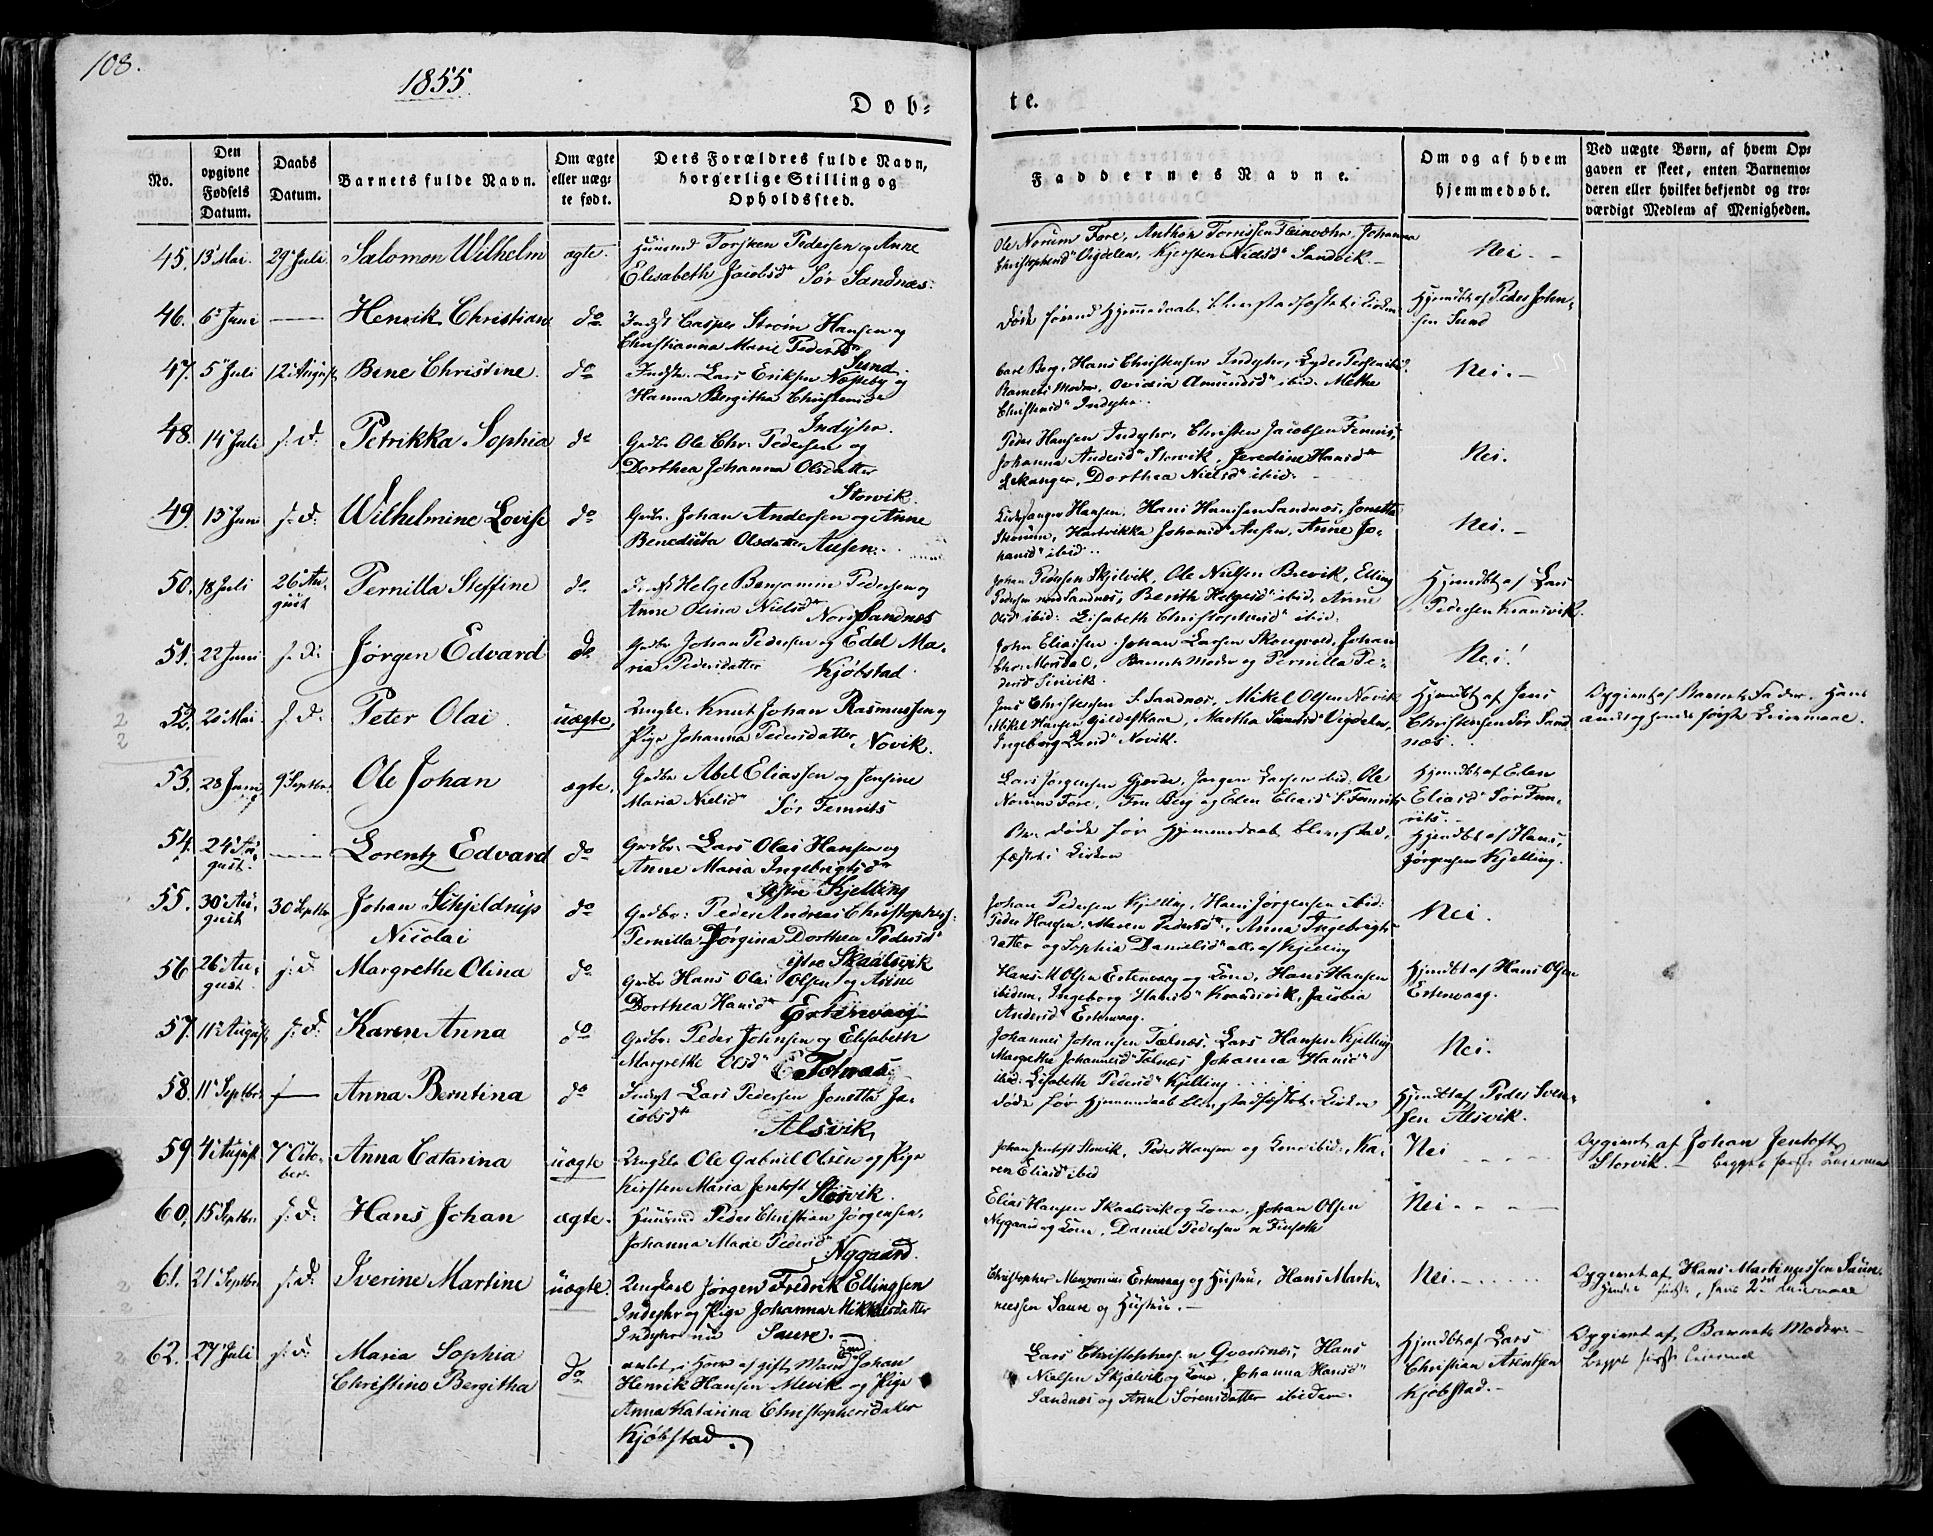 108.
1855
Døb-
te.
No.
Den opgivne Fødsels Datum.
Daabs Datum.
Barnets fulde Navn.
Om ægte eller uægte født.
Dets Forældres fulde Navn, borgerlige Stilling og Opholdssted.
Faddernes Navne.
Om og af hvem hjemmedøbt.
Ved uægte Børn, af hvem Opgaven er skeet, enten Barnemoderen eller hvilket bekjendt og troværdigt Medlem af Menigheden.
45. 13 Mai. 29 Juli. Salomon Wilhelm ægte. Huusmd Torsken Pedersen og Anne
Elisabeth Jacobsdr Sør Sandnæs.
Ole Norum Fore, Anthon Torrissen Fleinvær, Johanna
Christophersdr Vigdelen, Kjersten Nielsdr Sandvik.
Nei.
46. 6 Juni Henrik Christian do Indst Casper Strøm Hansen og
Christianna Marie Pedersdr Sund.
Døde førend Hjemmedaab blev stadfæstet i Kirken
Hjemdbt af Peder Johnsen Sund
47. 5 Juli 12 August Bene Christine do Indstr. Lars Eriksen Næseby og
Hanna Bergitha Christensdr Indyhr.
Carl Berg, Hans Christensen Indyhr,
Barnets Moder, Ovidia Amundsdr ibid. Methe
Christensdr Indyhr.
Nei.
48. 14 Juli s. d. Petrikka Sophia do Grdbr Ole Chr. Pedersen og
Dorthea Johanna Olsdatter Storvik.
Peder Hansen Indyhr, Christen Jacobsen
Johanna Andersdr Storvik, Jeredine Hansdr
Lekanger, Dorthea Nielsdr ibid.
Nei.
49. 13 Juni s. d. Wilhelmine Lovise do Grdbr. Johan Andersen og Anne
Benedicta Olsdatter Ausen.
Kirkesanger Hansen, Hans Hansen Sandnæs, Jonetta
Hartvikka Johansdr Ausen, Anne Johansdr ibid.
Nei.
50. 18 Juli 26 August Pernilla Steffine do Indst Helge Benjamin Pedersen og
Anne Olina Nielsdr Nord Sandnæs
Johan Pedersen Skjelvik, Ole Nielsen Brevik, Elling
Pedersen nord Sandnæs, Berith Helgesdr ibid. Anne
Olsdr ibid. Elisabeth Christophersdr ibid.
Hjemdbt af Lars
Pedersen Kransvik.
51. 22 Juni s. d. Jørgen Edvard do Grdbr Johan Pedersen og Edel Maria
Pedersdatter Kjøbstad.
John Eliassen Johan Larsen Skougvold, Johan
Chr. Mørsdal, Barnets Moder og Pernilla Pedersdr
Nei!
52. 20 Mai s. d. Peter Olai. uægte. Ungkl. Knut Johan Rasmussen og
Pige Johanna Pedersdatter Novik.
Jens Christensen S. Sandnæs, Mikel Olsen Novik
Mikel Hansen Gildeskaal, Martha Vigdelen,
Ingeborg Larsdr Novik.
Hjemdbt af Jens
Christensen Sør Sandnæs.
Opgivet af Barnets Fader. Hans
andet og hendes første Leiermaal.
53. 28 Juni 9 Septbr. Ole Johan ægte. Grdbr Abel Eliassen og Jensine
Maria Nielsdr Sør Femris
Lars Jørgensen Gjerde, Jørgen Larsen ibid. Ole
Norum Fore, Fru Berg og Elen Eliasdr S. Femris
Hjemdbt af Elen
Eliasdr Sør Femris.
54. 24 August. Lorentz Edvard do Grdbr. Lars Olai Hansen og
Anne Maria Ingebrigtsdr Østre Kjelling
Bn døde før Hjemmedaab blev stadfæstet i Kirken
Hjemdbt af Hans
Jørgensen Kjelling.
55. 30 August 30 Septbr Johan Schjeldrup
Nicolai do Grdbr. Peder Andreas Christophers.
Pernilla Jørgina Dorthea Pedersdr østre Skaalsvik
Johan Pedersen Kjelling, Hans Jørgensen ibid.
Peder Hansen, Maren Pedersdr, Anna Ingebrigtsdatter
og Sophia Danielsdr alle af Kjelling
Nei.
56 26 August. s. d. Margrethe Olina do Grdbr Hans Olai Olsen og Anne
Dorthea Hansdr Estenvaag
Hans M Olsen Estenvaag og Kone, Hans Hansen
ibidem, Ingeborg Hansdr Krandsvik, Jacobia
Andersdr Estenvaag.
Hjemdbt af Hans Olsen
Estenvaag.
57. 11 August s. d. Karen Anna do Grdbr. Peder Johnsen og Elisabeth
Margrethe Olsdr Tolnæs
Johannes Johansen Tølnæs, Lars Hansen Kjelling
Margrethe Johannesdr Tølnæs Johanna Hansdr
ibid. Elisabeth Pedersdr Kjelling
Nei.
58. 11 Septbr. Anna Berntina do Indst Lars Pedersen Jonetta Jacobsdr
Alsvik
Døde før Hjemmedaab blev stadfæstet i Kirken
Hjemdbt af Peder Svensen Alsvik.
59. 4 August 7 October. Anna Catarina uægte Ungkl. Ole Gabriel Olsen og Pige
Kirsten Maria Jentoft Storvik.
Johan Jentoft Storvik, Peder Hansen og Kone ibid., Karen Eliasdr ibid
Nei
Opgivet af Johan Jentoft
Storvik. begges første Leiermaal
60. 15 Septbr. s. d. Hans Johan ægte. Huusmd Peder Christian Jørgensen,
Johanna Marie Pedersdr Nygaard.
Elias Hansen Skaalsvik og Kone, Johan Olsen
Nygaard og Kone, Daniel Pedersen
Nei
61. 21 Septbr s. d. Iverine Martine uægte. Ungkarl Jørgen Fredrik Ellingsen
Indyhr og Pige Johanna Mikkelsdatter
Indyhr nu Saure.
Christopher Estenvaag og Hustru, Hans Martinussen Saure og Hustru.
Nei.
Opgivet af Hans Martinussen Saure.
Hendes første, hans 2det Leiermaal
62. 27 Juli s. d. Maria Sophia
Christine Bergitha do avlet i Hoer af gift Mand Johan
Henrik Hansen Mevik og Pige
Anna Katarina Christophersdatter
Kjøbstad.
Lars Christophersen Hans
Nielsen Skjelvik og Kone, Johanna Hansdr
Sandnæs og Anne Sørensdatter ibidem.
Hjemdbt af Lars
Christian Arentsen
Kjøbstad.
Opgivet af Barnets Moder.
begges første Leiermaal